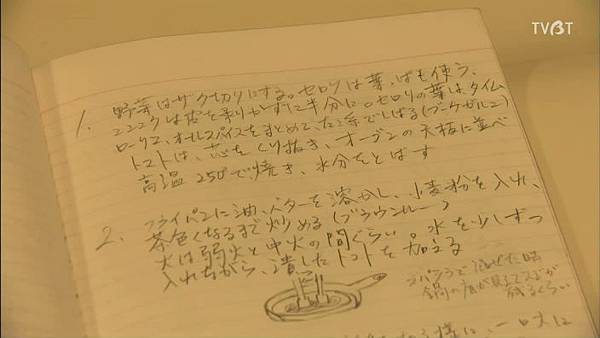 TVBT
1. 野菜はザク切りにする。セロリは葉っぱも使う、
ニンニクは皮を剥かずに半分に。セロリの葉は、タイム
ローリエ、オールスパイスをまとめて、たこ糸でしばる(ブーケガルニ)
トマトは、芯をくり抜き、オーブンの天板に並べ
高温 250°で焼き、水分をとばす
2. フライパンに油、バターを溶かし、小麦粉を入れ、
茶色くなるまで炒める(ブラウンルー)
火は弱火と中火の間ぐらい。水を少しずつ
入れながら、潰したトマトを加える
ヘラで混ぜた時
鍋の底が見えて
残るくらい